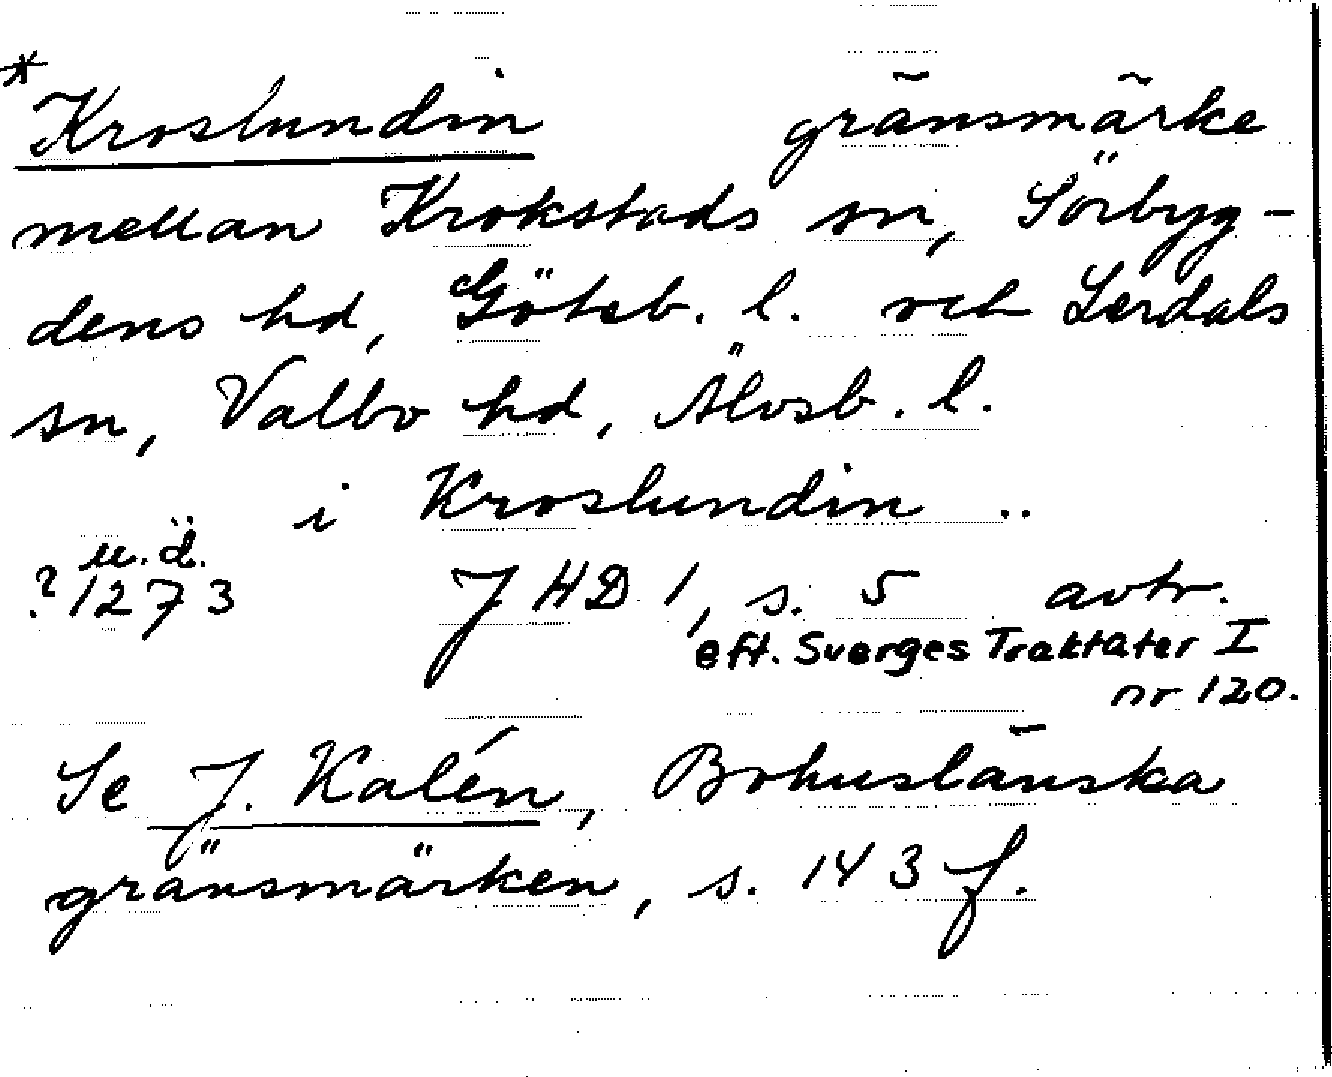 *Kroslundin gränsmärke
mellan Krokstads sn, Sörbyg-
dens hd, Göteb. l. och Lerdals
sn, Valbo hd, Älvsb. l.
i Kroslundin ..
u.d.
?1273 JHD 1, s. 5 avtr.
eft. Sverges Traktater I
nr 120.
Se J. Kalén, Bohuslänska
gränsmärken, s. 143 f.